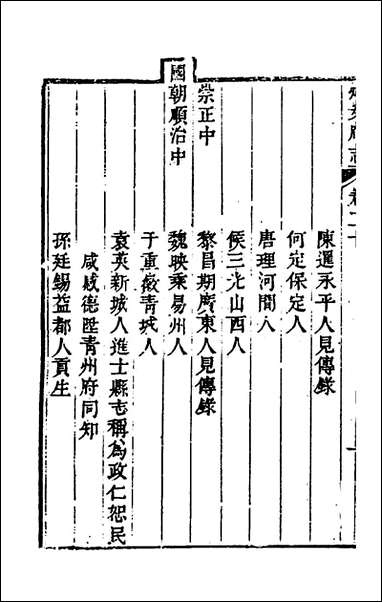 府志 卷二十
陳邏永平人見傳錄
何定保定人
唐理河間人
侯三光山西人
崇正中
黎昌期廣東人見傳錄
國朝順治中
魏映乘易州人
于重嶶青城人
袁英新城人進士縣志稱為政仁恕民
咸感德陞青州府同知
孫廷錫益都人貢生